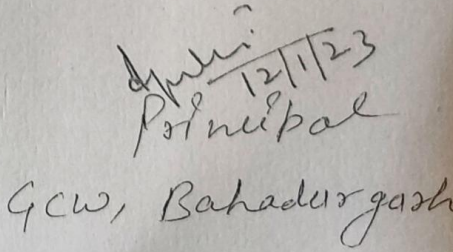 12/1/23
Principal
GCW, Bahadurgarh